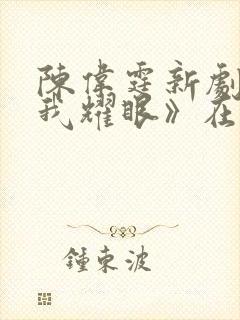 陳偉霆新劇
我耀眼》在
鍾東波